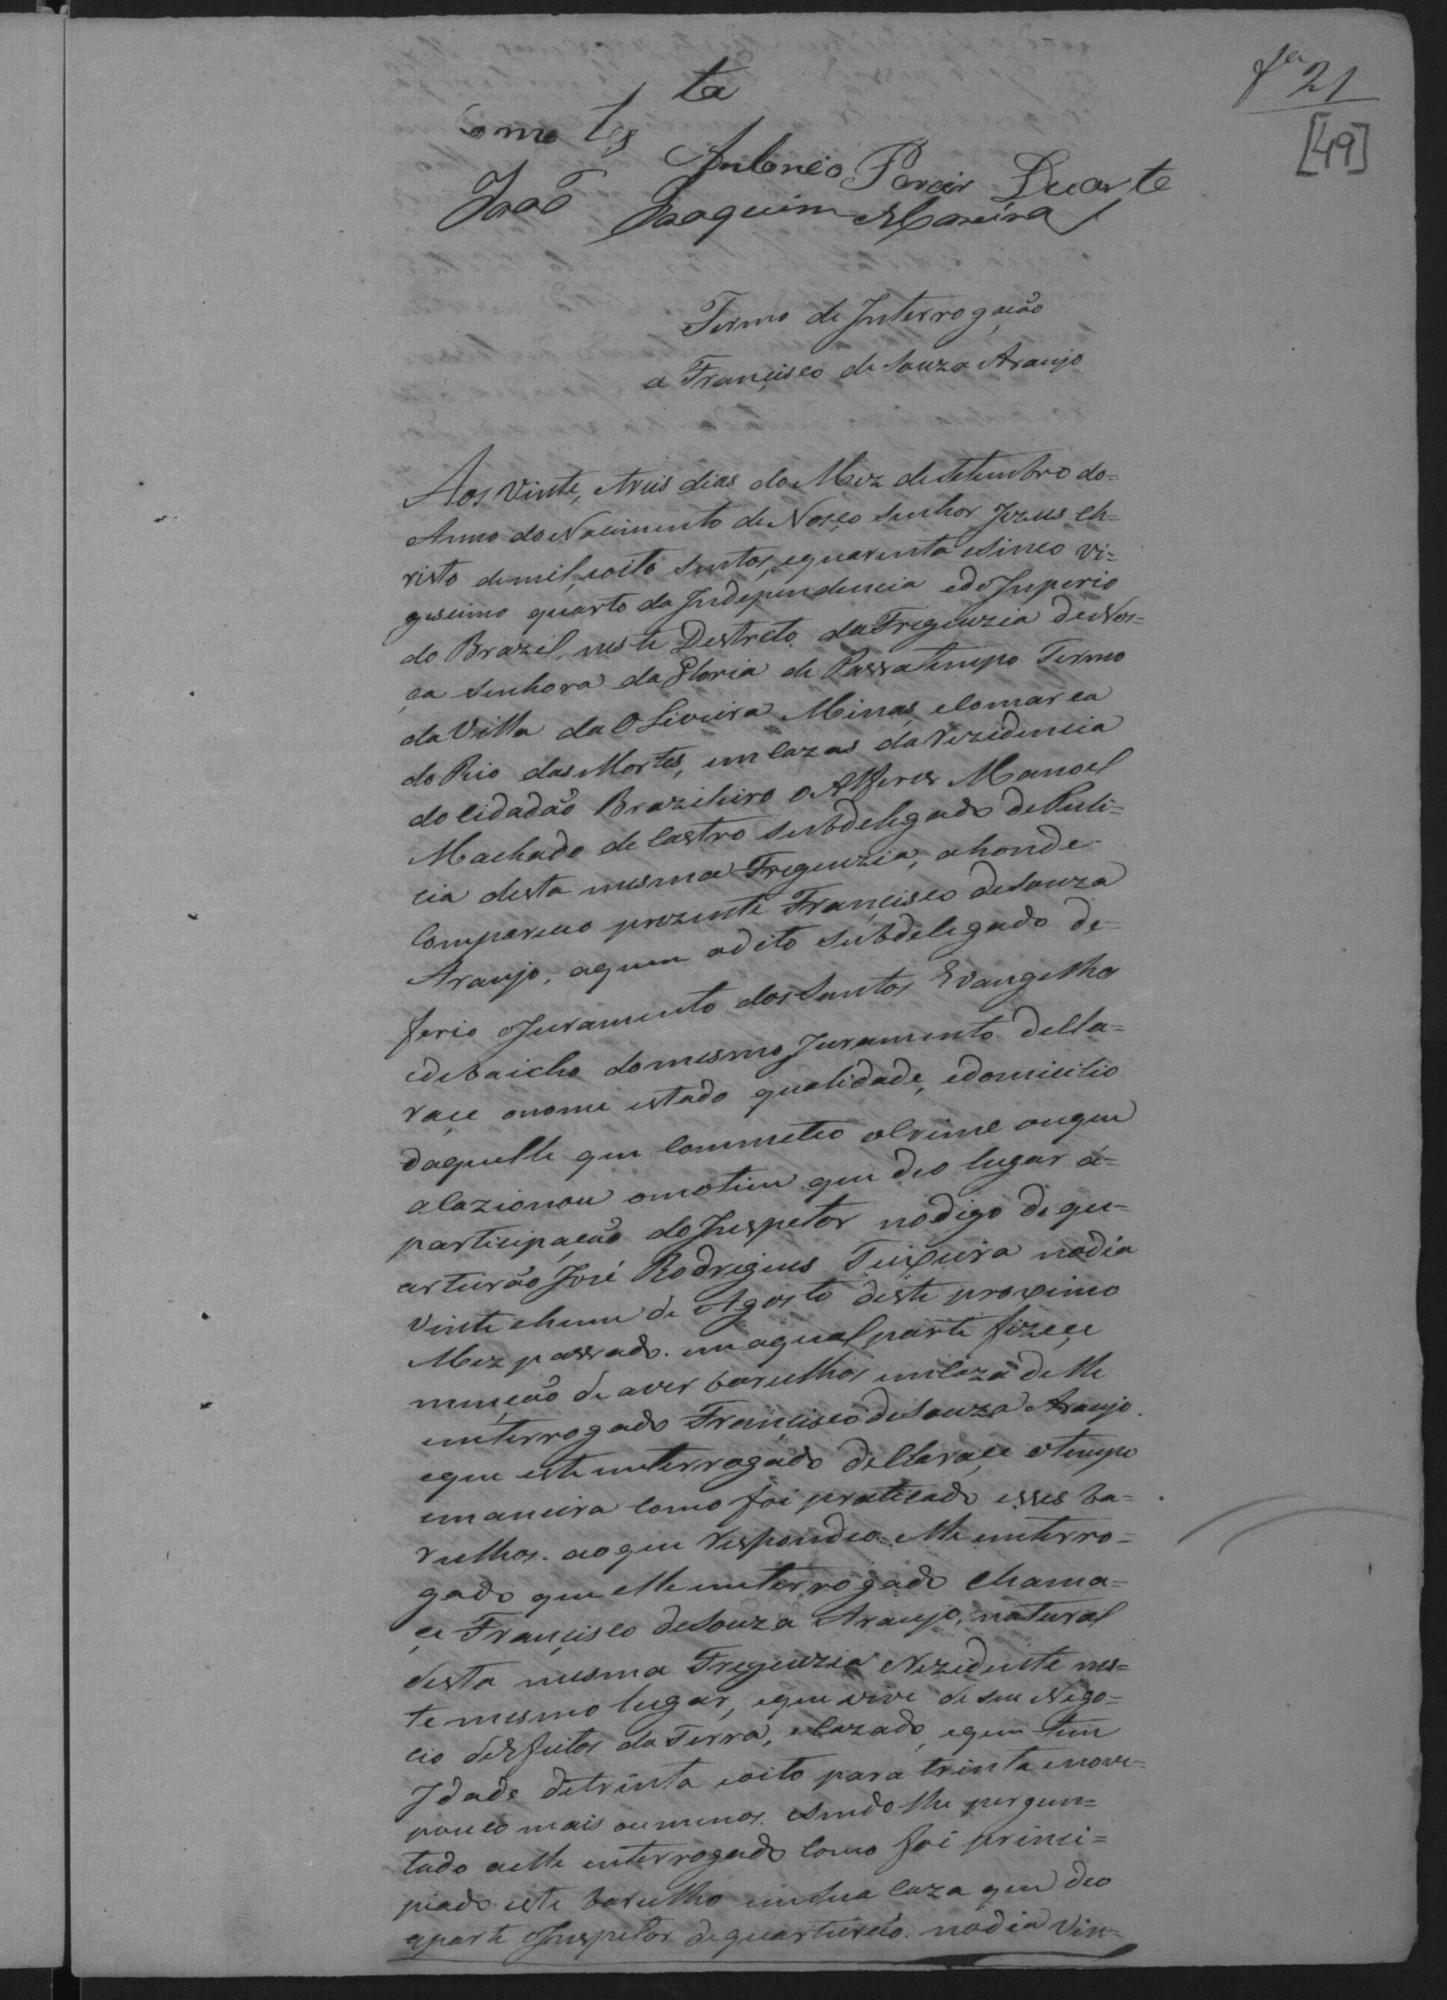 fª 21
[49]
Como tes ta
Antoneo Pereir Duarte
João Joaquim Mareira
Termo de Interrogação
a Françisco de Souza Araujo
Aos Vinte, etreis dias do Mez de Setembro do=
Anno do Nacimento de Noiço Senhor Jezus Ch=
risto demil, eoito Sentos, equarenta esinco Vi=
gesimo quarto da Independencia edo Imperio
do Brazil, neste Destreto da Freguezia de Nos=
ça Senhora da Gloria de Passatempo Termo
da Villa da Oliveira Minas, eComarca
do Rio das Mortes, em Cazas da Rezidencia
do Cidadão Brazileiro o Alferes Manoel
Machado de Castro Subdelegado de Puli=
cia desta mesma Freguezia, ahonde
Compareceo prezente Françisco de Souza
Araujo, aquem odito Subdelegado de=
ferio oJuramento dos Santos Evangelhos
edebaicho do mesmo Juramento della=
raçe onome estado qualidade, edomicilio
daquelle que Commeteo oCrime ouquem
aCazionou omotim que deo lugar á=
participação do Inspetor no digo de qu=
arturão José Rodrigues Teixeira nodia
Vinte ehum de Agosto deste proximo
Mez passado. em aqual parte fizeçe
menção de aver barulhos emCaza delle
enterrogado Françisco de Souza Araujo.
eque este enterrogado dellaraçe otempo
emaneira como foi praticado esses ba=
rulhos. aoque Respondeo elle enterro=
gado que elle enterrogado chama=
çe Françisco de Souza Araujo, natural
desta mesma Freguezia eRezidente nes=
te mesmo lugar, eque vive de seu Nego=
cio de efeitos da Terra, eCazado, eque tem
Idade de trinta eoito para trinta enove=
pouco mais oumenos. eSendo lhe pergun=
tado aelle enterrogado Como foi princi=
piado este barulho emSua Caza que deo
aparte oInspetor de quarturão. nodia Vin=